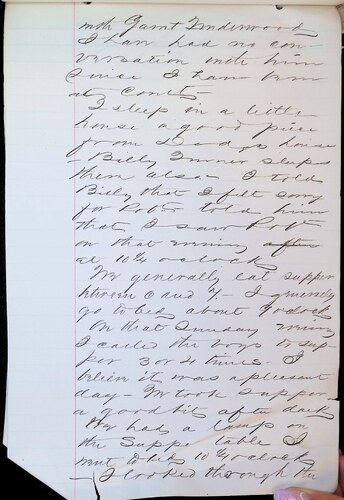 with Gant Underwood
I have had no con-
versation with him
Since I have been
at Court—
I sleep in a little
house a good piece
from Dad's house
– Billy Turner sleeps
there also – I told
Billy that I felt sorry
for Robt told him
that I saw Robt
on that evening after
at 10¼ o'clock
We generally eat supper
between 6 and 7 – I generally
go to bed about 9 oclock
On that Sunday evening
I called the boys to sup-
per 3 or 4 times. I
believe it was a pleasant
day – We took supper
a good bit after dark
We had a lamp on
the Supper table I
went to bed 10¼ o'clock
– I looked through the